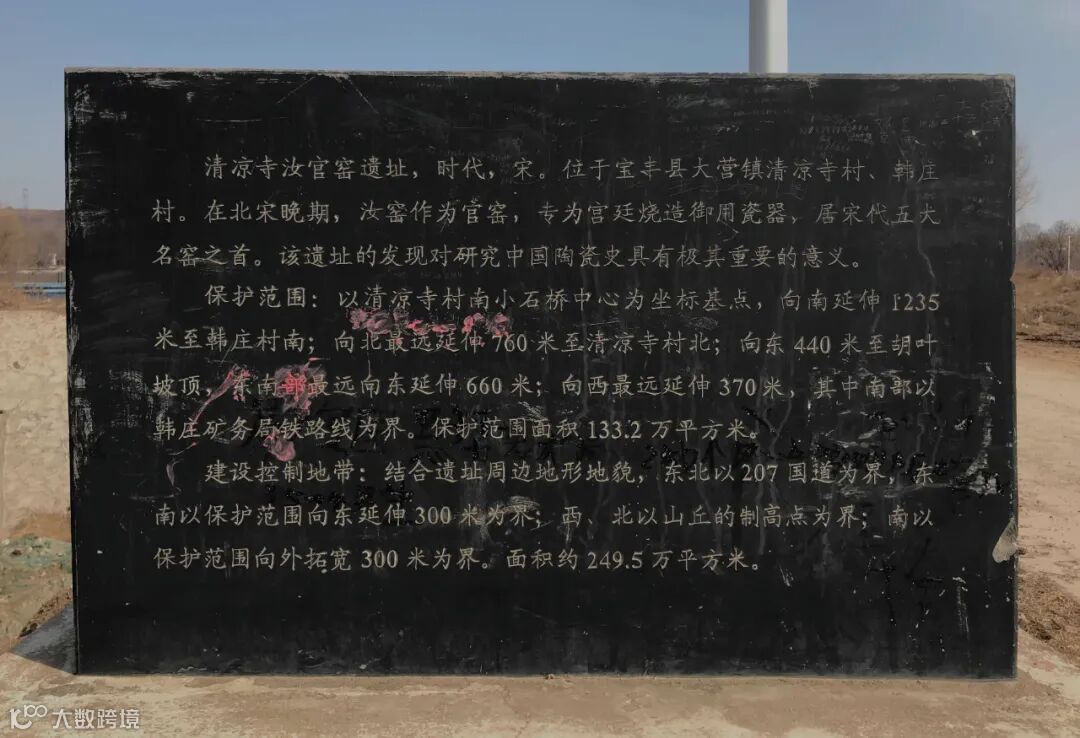 清凉寺汝官窑遗址，时代，宋。位于宝丰县大营镇清凉寺村、韩庄
村。在北宋晚期，汝窑作为官窑，专为宫廷烧造御用瓷器，居宋代五大
名窑之首。该遗址的发现对研究中国陶瓷史具有极其重要的意义。
保护范围：以清凉寺村南小石桥中心为坐标基点，向南延伸1235
米至韩庄村南；向北最远延伸760米至清凉寺村北；向东440米至胡叶
坡顶，东南部最远向东延伸660米；向西最远延伸370米，其中南部以
韩庄矿务局铁路线为界。保护范围面积133.2万平方米。
建设控制地带：结合遗址周边地形地貌，东北以207国道为界，东
南以保护范围向东延伸300米为界；西、北以山丘的制高点为界；南以
保护范围向外拓宽300米为界。面积约249.5万平方米。
大数跨境